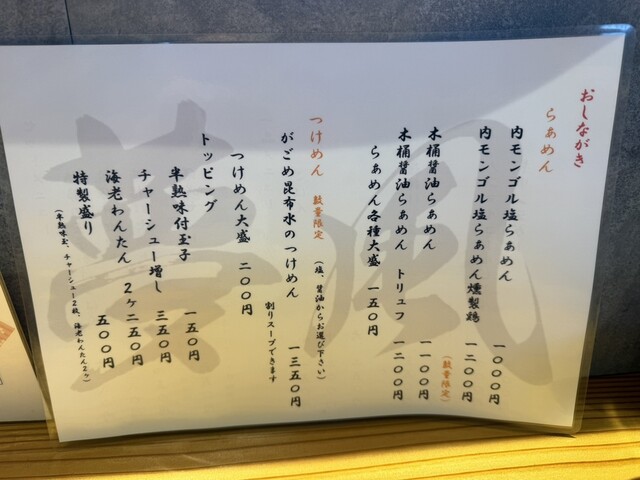 おしながき
らぁめん
内モンゴル塩らぁめん 一〇〇〇円
内モンゴル塩らぁめん燻製鶏 一二〇〇円
(数量限定)
木桶醤油らぁめん 一一〇〇円
木桶醤油らぁめん トリュフ 一二〇〇円
らぁめん各種大盛 一五〇円
つけめん 数量限定 (塩、醤油からお選び下さい)
がごめ昆布水のつけめん 一三五〇円
割りスープできます
つけめん大盛 二〇〇円
トッピング
半熟味付玉子 一五〇円
チャーシュー増し 三五〇円
海老わんたん 2ヶ二五〇円
特製盛り 五〇〇円
(半熟味玉、チャーシュー2枚、海老わんたん2ヶ)
夢風